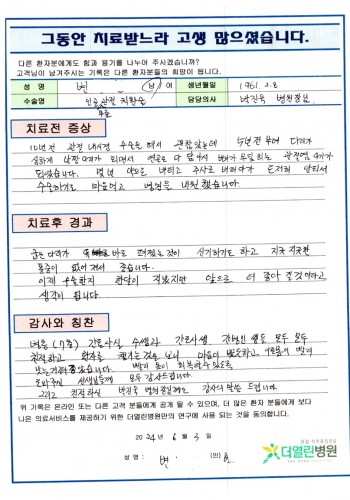 그동안 치료받느라 고생 많으셨습니다.
다른 환자분에게도 힘과 용기를 나누어 주시겠습니까?
고객님이 남겨주시는 기록은 다른 환자분들의 희망이 됩니다.
성 명 변 남 / 여 생년월일 1961. 2. 8
수술명 인공관절 치환술 담당의사 박진욱 병원장님
무릎
치료전 증상
10년전 관절 내시경 수술을 해서 괜찮았는데 5년전 부터 다리가
심하게 안짱다리가 되면서 연골도 다 닳아서 뼈가 부딪히는 관절염 4기가
되었습니다. 몇년 약으로 버티고 주사로 버티다가 도저히 안되서
수술하기로 마음먹고 병원을 내원했습니다.
치료후 경과
굽은 다리가 바로 펴졌는것이 신기하기도 하고 지긋지긋한
통증이 없어져서 좋습니다.
이제 수술한지 한달이 적났지만 앞으로 더 좋아질것이라고
생각이 됩니다.
감사와 칭찬
병동 (7층) 간호사실 수쌤과 간호사쌤, 간병인 쌤들 모두 모두
친절하고 환자를 챙기는것을 보니 마음이 따뜻하고
빨리 많이 회복하수 있도록
도와주신 선생님들께 모두 감사드립니다.
그리고 친절하신 박진욱 병원장님께도 감사의 말씀 드립니다.
위 기록은 온라인 또는 다른 고객 분들에게 공개 될 수 있으며, 더 많은 환자 분들에게 보다
나은 의료서비스를 제공하기 위한 더열린병원만의 연구에 사용 되는 것을 동의합니다.
2024년 6월 3일
성 명 : 변 (인)
관절·척추중점진료
더열린병원